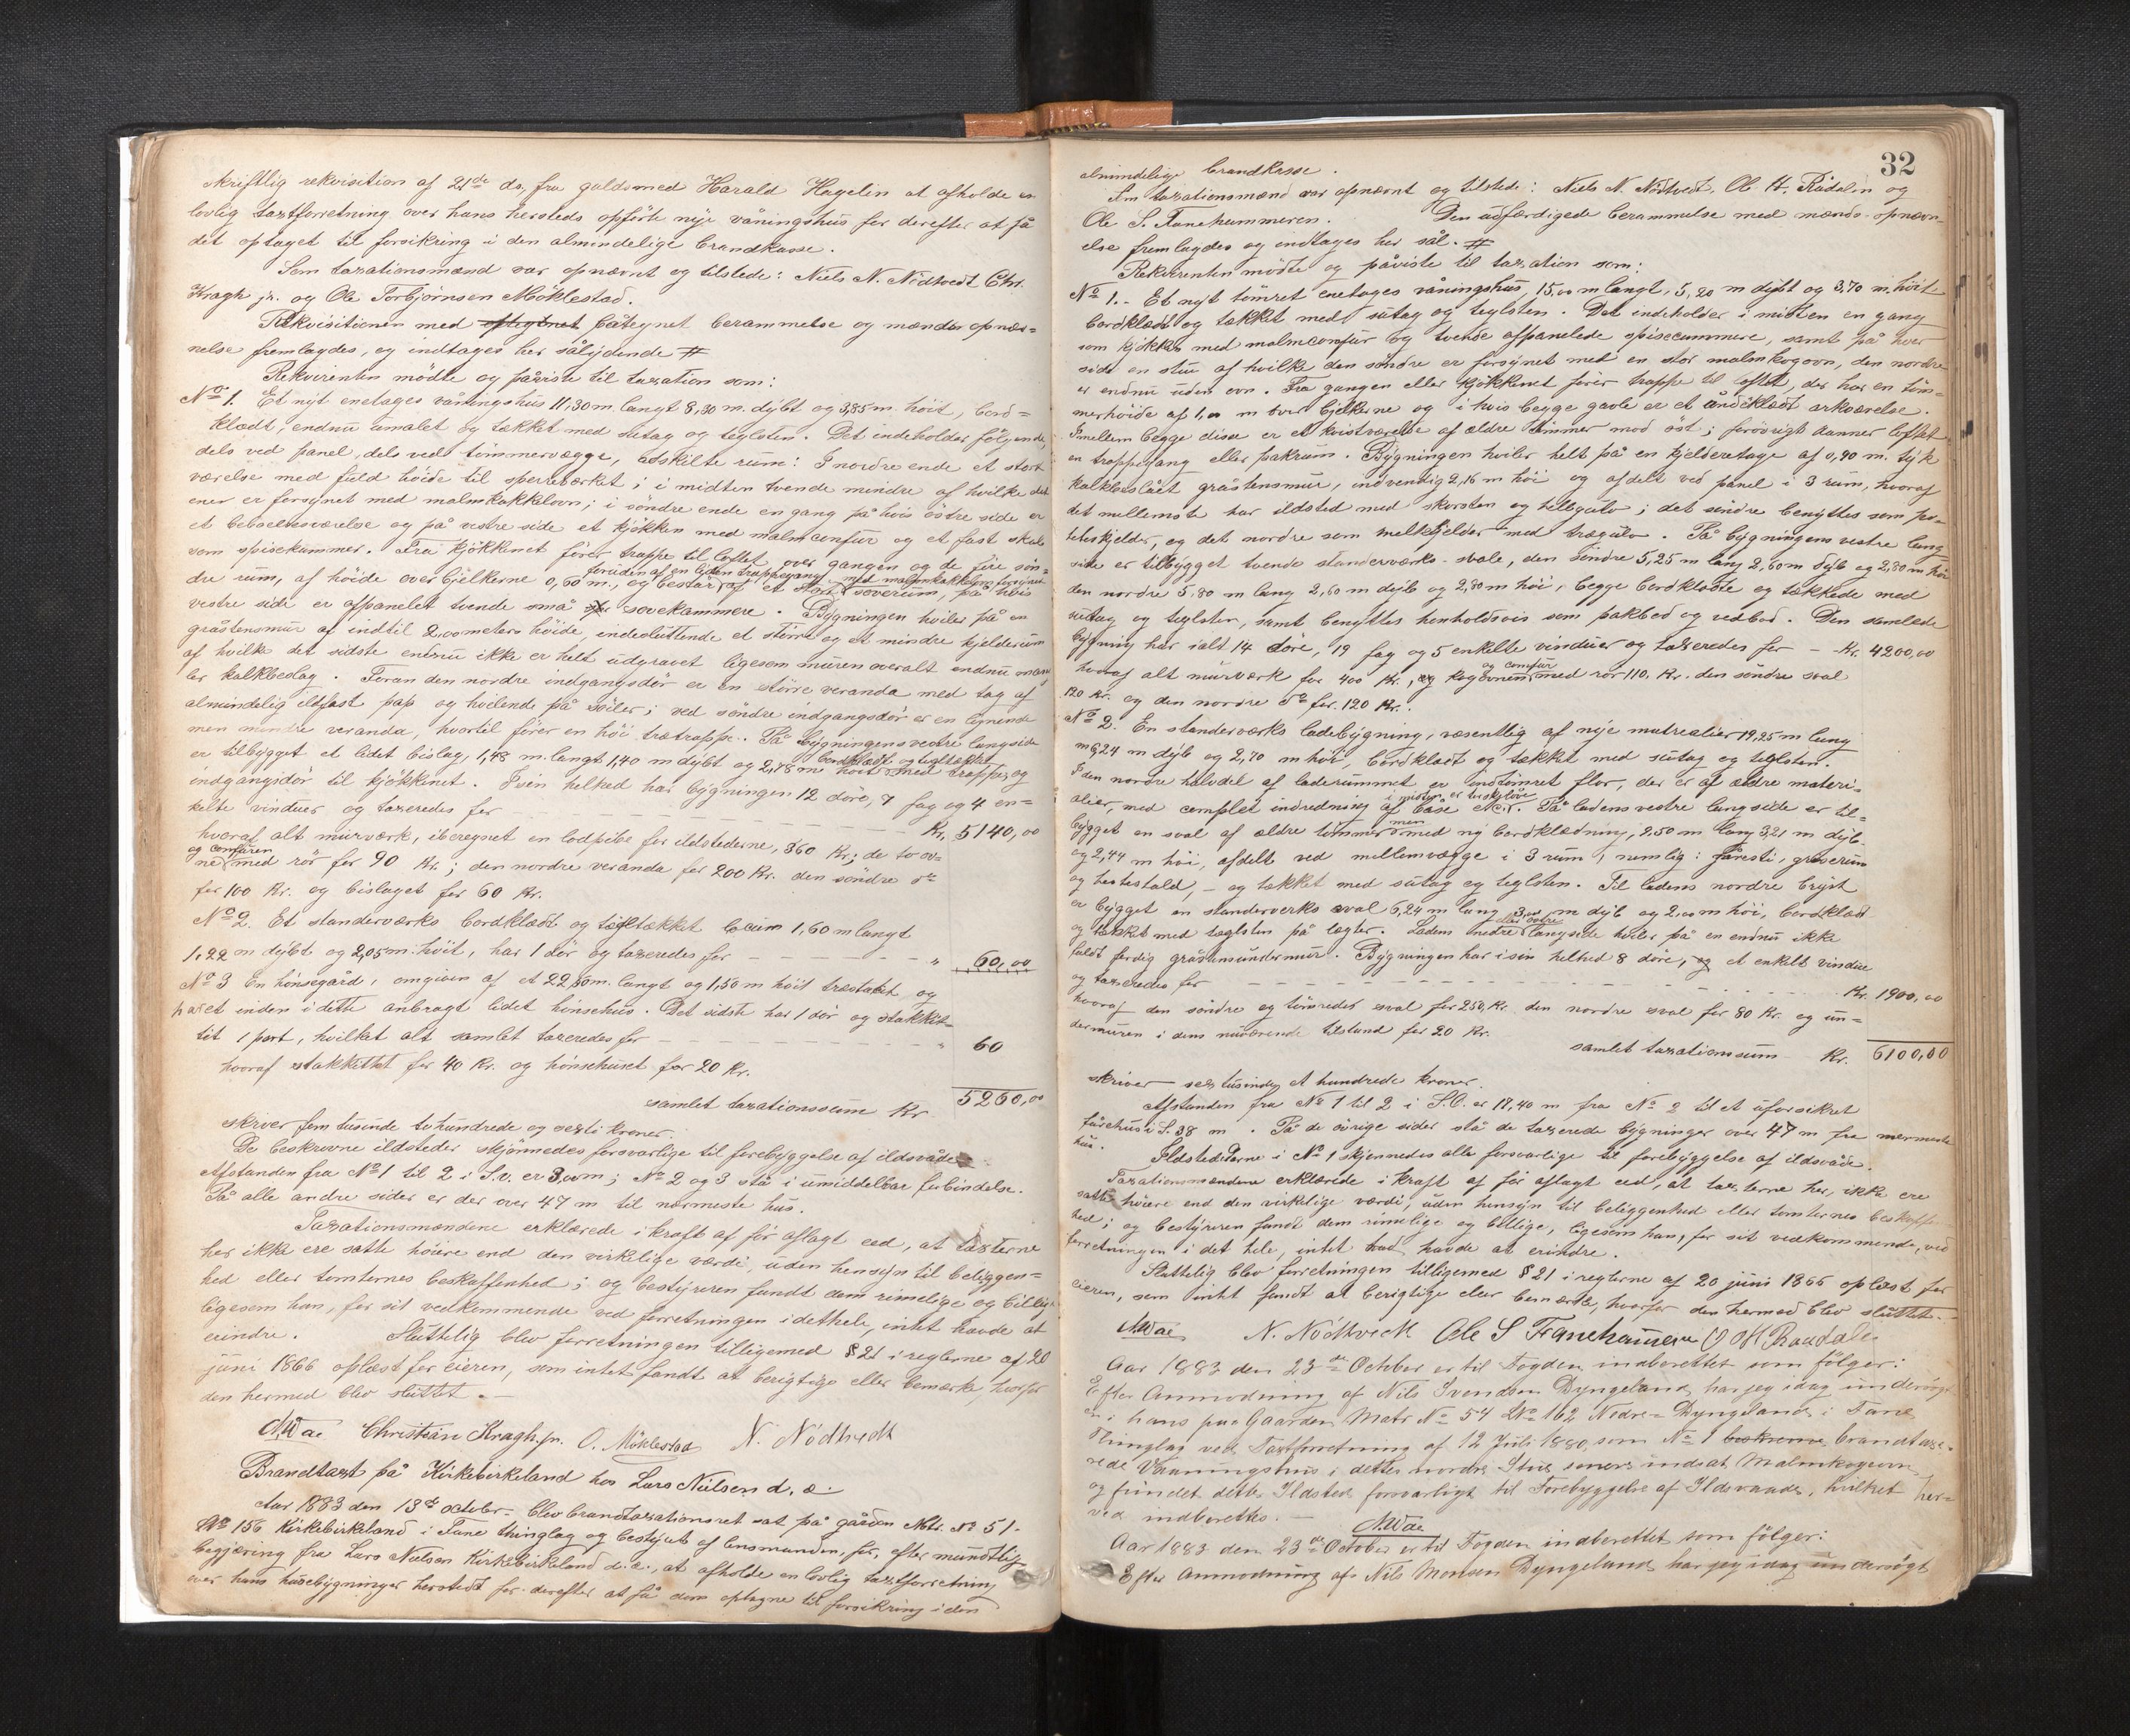 skriftlig rekvisition af 21de ds. fra guldsmed Harald Hagelin at afholde en
lovlig taxtforretning over hans hersteds opförte nye våningshus for derefter at få
det optaget til forsikring i den almindelige brandkasse.
Som taxationsmænd var opnævnt og tilstede: Niels N. Nödtvedt Chr.
Kragh jr. og Ole Torbjørnsen Möklestad.
Rekvisitionen med påtegnet berammelse og mænds opnæv=
nelse fremlagdes, og indtages her sålydende #
Rekvirenten mödte og påviste til taxation som:
No 1. Et nyt enetages våningshus 11,30 m. langt 8,30 m. dybt og 3,85 m. höit, bord=
klædt, endnu umalet og tækket med sutag og teglsten. Det indeholder fölgende,
dels ved panel, dels ved tömmervægge, adskilte rum: I nordre ende et stort
værelse med fuld höide til sperreværket; i midten tvende mindre af hvilke det
ene er forsynet med malmkakkelovn; i söndre ende en gang på hvis östre side er
et beboelsesværelse og på vestre side et kjökken med malmcomfur og et fast skab
som spisekammer. Fra kjökkenet förer trappe til loftet over gangen og de fire sön=
dre rum, af höide over bjelkerne 0,60 m., og består foruden af en liden trappegang af et stort med malmkakkelovn forsynet soverum, på hvis
vestre side er afpanelet tvende små sovekammere. Bygningen hviler på en
gråstensmur af indtil 2,00 meters höide, indesluttende et större og et mindre kjelderrum
af hvilke det sidste endnu ikke er helt udgravet ligesom muren overalt endnu mang=
ler kalkbeslag. Foran den nordre indgangsdör er en större veranda med tag af
almindelig ildfast pap og hvilende på söiler; ved söndre indgangsdör er en lignende
men mindre veranda, hvortil förer en höi trætrappe. På bygningens vestre langside
er tilbygget et lidet bislag, 1,48 m. langt 1,40 m dybt og 2,18 m höit bordklædt og tagtækket med trappe, og
indgangsdör til kjökkenet. I sin helhed har bygningen 12 döre, 7 fag og 4 en=
kelte vinduer og taxeredes for — — — Kr. 5140,00
hvoraf alt murværk, iberegnet en lodpibe for ildstederne, 360 Kr; de to ov=
ne og comfuren med rör for 90 Kr.; den nordre veranda for 200 Kr. den söndre do
for 100 Kr. og bislaget for 60 Kr.
No 2. Et standerværks bordklædt og tagtækket locum 1,60 m langt
1,22 m dybt og 2,05 m. höit, har 1 dör og taxeredes for — — — " 60,00
No 3 En hönsegård, omgiven af et 22,50 m. langt og 1,50 m höit træstakit og
et inden i dette anbragt lidet hönsehus. Det sidste har 1 dör og stakkit=
tet 1 port, hvilket alt samlet taxeredes for — — — " 60
hvoraf stakkittet for 40 Kr. og hönsehuset for 20 Kr.
samlet taxationssum Kr 5260,00
skriver fem tusinde tohundrede og sexti kroner.
De beskrevne ildsteder skjönnedes forsvarlige til forebyggelse af ildsvåde
Afstanden fra No 1 til 2 i S.v. er 3,00 m; No 2 og 3 stå i umiddelbar forbindelse.
På alle andre sider er der over 47 m til nærmeste hus.
Taxationsmændene erklærede i kraft af för aflagt eed, at taxterne
her ikke ere satte höiere end den virkelige værdi, uden hensyn til beliggen=
hed eller tomternes beskaffenhed; og bestyreren fandt dem rimelige og billige
ligesom han, for sit vedkommende ved forretningen i dethele, intet havde at
erindre. Sluttelig blev forretningen tilligemed § 21 i reglerne af 20
juni 1866 oplæst for eieren, som intet fandt at berigtige eller bemærke, hvorfor
den hermed blev sluttet. —
Christian Kragh jr. O. Möklestad N. Nödtvedt
Brandtaxt på Kirkebirkeland hos Lars Nielsen d. æ.
Aar 1883 den 13de october blev brandtaxationsret sat på gården Mtr. No 51.
No 156 Kirkebirkeland i Fane thinglag og bestyret af lensmanden, for, efter mundtlig
begjæring fra Lars Nielsen Kirkebirkeland d. æ., at afholde en lovlig taxtforretning
over hans husebygninger hersteds for derefter at få dem optagne til forsikring i den
32
almindelige brandkasse.
Som taxationsmænd var opnævnt og tilstede: Niels N. Nödtvedt, Ole H. Rådalen og
Ole S. Fanehammeren. Den udfærdigede berammelse med mænds opnævn=
else fremlagdes og indtages her sål. #
Rekvirenten mödte og påviste til taxation som:
No 1. Et nyt tömret enetages våningshus, 15,00 m langt, 5,20 m dybt og 3,70 m. höit
bordklædt og tækket med sutag og teglsten. Det indeholder i midten en gang
som kjökken med malmcomfur og tvende afpanelede spisecammere, samt på hver
side en stue af hvilke den söndre er forsynet med en stor malmkogovn, den nordre
er endnu uden ovn. Fra gangen eller kjökkenet förer trappe til loftet, der har en töm=
merhöide af 1,00 m over bjelkerne og i hvis begge gavle er et ark­værelse.
Imellem begge disse er et kvistværelse af ældre tömmer mod öst; forövrigt danner loftet
en trappegang eller pakrum. Bygningen hviler helt på en kjelderetage af 0,90 m. tyk
kalkbeslået gråstensmur, indvendig 2,16 m höi og afdelt ved panel i 3 rum, hvoraf
det mellemste har ildsted med skorsten og hellegulv; det söndre benyttes som po=
teteskjelder, og det nordre som melkekjelder med trægulv. På bygningens vestre lang
side er tilbygget tvende standerværks-svale, den söndre 5,25 m lang 2,60 m dyb og 2,80 m höi
den nordre 5,80 m lang 2,60 m dyb og 2,80 m höi, begge bordklædte og tækkede med
sutag og teglsten, samt benyttes henholdsvis som pakbod og vedbod. Den samlede
bygning har ialt 14 döre, 19 fag og 5 enkelte vinduer og taxeredes for — Kr. 4200,00
hvoraf alt murværk for 400 Kr., kogovnen og comfur med rör 110. Kr. den söndre sval
120 Kr. og den nordre do for 120 Kr.
No 2. En standerværks ladebygning, væsentlig af nye matrealier 19,25 m lang
6,24 m dyb og 2,70 m höi, bordklædt og tækket med sutag og teglsten.
I den nordre halvdel af laderummet er indtömret flor, der er af ældre materi=
alier, med complet indredning af båse etc. i midten er treskelöe. På ladens vestre langside er til=
bygget en sval af ældre tömmer men med ny bordklædning, 9,50 m lang 3,21 m dyb
og 2,44 m höi, afdelt ved mellemvægge i 3 rum, nemlig: fåresti, grøverum
og hestestald, — og tækket med sutag og teglsten. Til ladens nordre bryst
er bygget en standerverks sval 6,24 m lang 3,00 m dyb og 2,00 m höi, bordklædt
og tækket med teglsten på lægter. Ladens nedre langside hviler på en endnu ikke
fuldt færdig gråstensundermur. Bygningen har i sin helhed 8 döre, et enkelt vindue
og taxeredes for — — — Kr. 1900,00
hvoraf den söndre og tömredes sval for 250 Kr. den nordre sval for 80 Kr. og un=
dermuren i dens nuværende tilstand for 20 Kr.
samlet taxationssum Kr. 6100,00
skriver sex tusinde et hundrede kroner.
Afstanden fra No 1 til 2 i S.O. er 17,40 m fra No 2 til et uforsikret
fårehus i S. 38 m. På de övrige sider stå de taxerede bygninger over 47 m fra nærmeste
hus.
Ildstederne i No 1 skjönnedes alle forsvarlige til forebyggelse af ildsvåde.
Taxationsmændene erklærede i kraft af för aflagt eed, at taxterne her, ikke ere
satte höiere end den virkelige værdi, uden hensyn til beliggenhed eller tomternes beskaffen
hed; og bestyreren fandt dem rimelige og billige, ligesom han, for sit vedkommende, ved
forretningen i det hele, intet havde at erindre.
Sluttelig blev forretningen tilligemed § 21 i reglerne af 20 juni 1866 oplæst for
eieren, som intet fandt at berigtige eller bemærke, hvorfor den hermed blev sluttet. —
N. Nödtvedt Ole S Fanehammeren O H. Raadalen
Aar 1883 den 23de October er til Fogden indberettet som fölger:
Efter Anmodning af Nils Ivendsen Dyngeland, har jeg idag undersögt
en i hans paa Gaarden Matr No 54 LNo 162 Nedre-Dyngeland i Fane
Thinglag ved Taxtforretning af 12 Juli 1880, som No 1 brandtaxe=
rede Vaaningshus i dettes nordre Stue senere indsat Malmkogeovn
og fundet dette Ildsted forsvarligt til Forebyggelse af Ildsvaade, hvilket her=
ved indberettes. —
Aar 1883 den 23de October er til Fogden indberettet som fölger:
Efter Anmodning af Nils Monsen Dyngeland har jeg idag undersögt